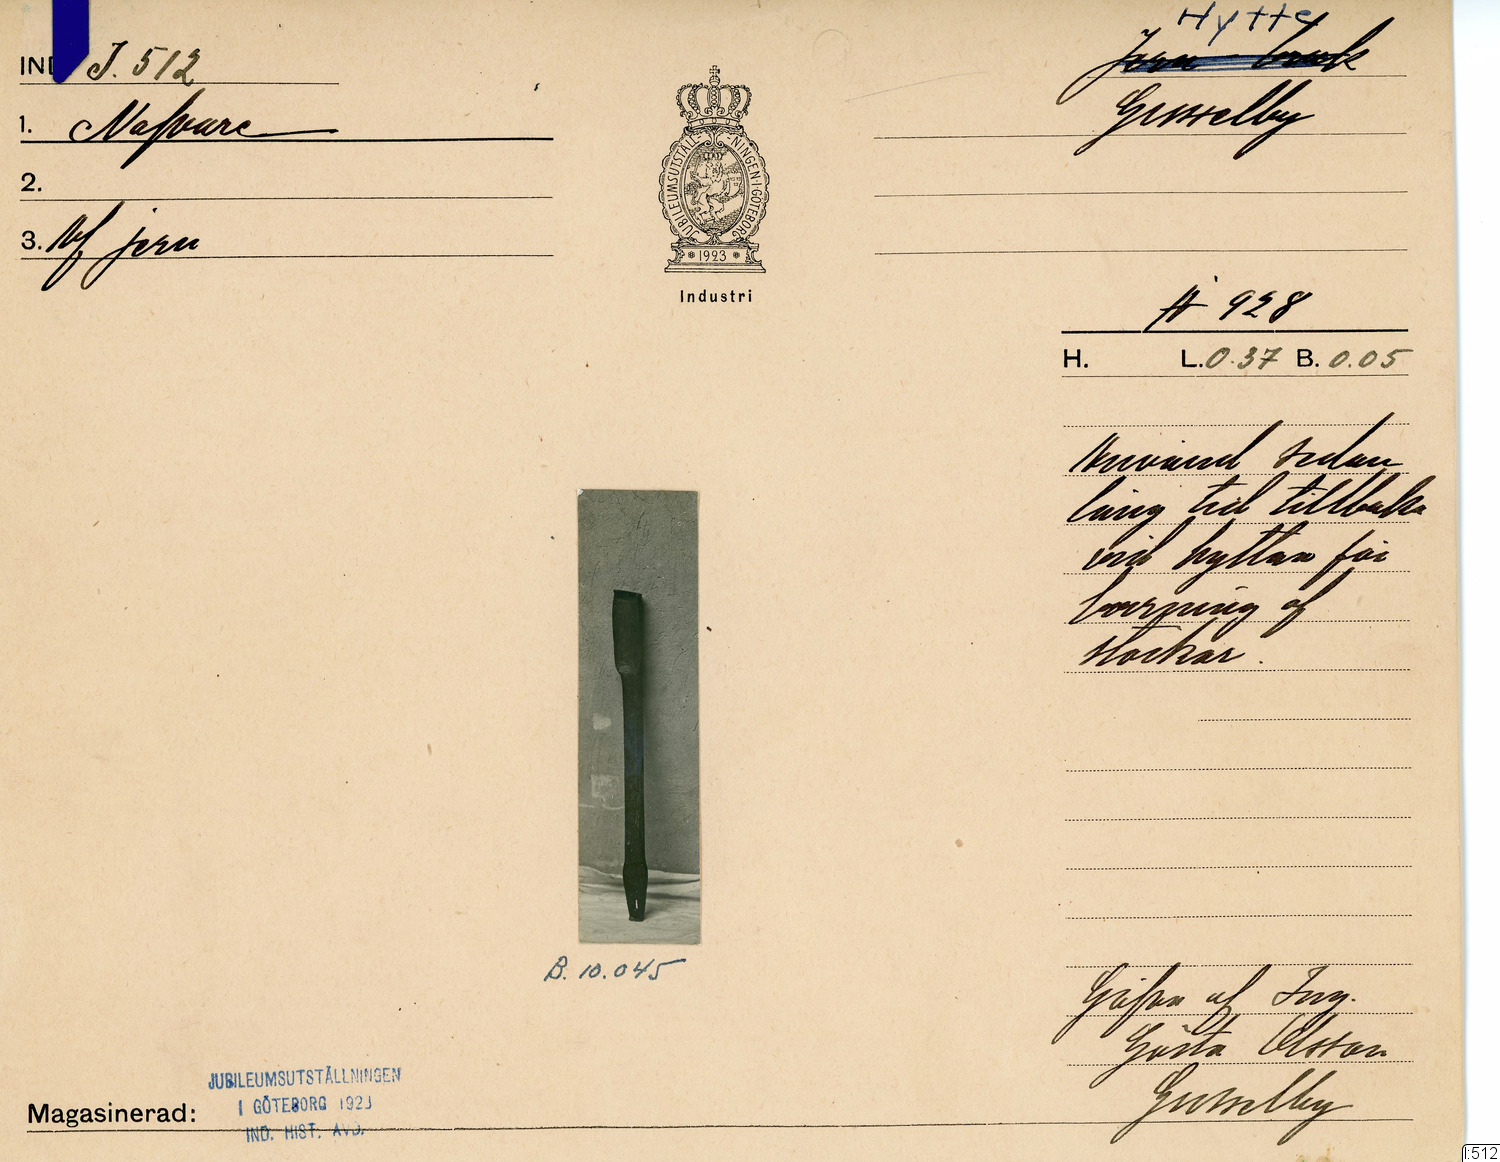 IND J. 512
1. Nafvare
2.
3. Af jern
JUBILEUMSUTSTÄLLNINGEN·I·GÖTEBORG
1923
Industri
Hytte
Jern bruk
Gusselby
# 928
H. L. 0.37 B. 0.05
Använd sedan
lång tid tillbaka
vid hyttan för
borrning af
stockar.
B. 10.045
Gåfva af Ing.
Gösta Olsson
Gusselby
Magasinerad:
JUBILEUMSUTSTÄLLNINGEN
I GÖTEBORG 1923
IND. HIST. AVD.
I:512